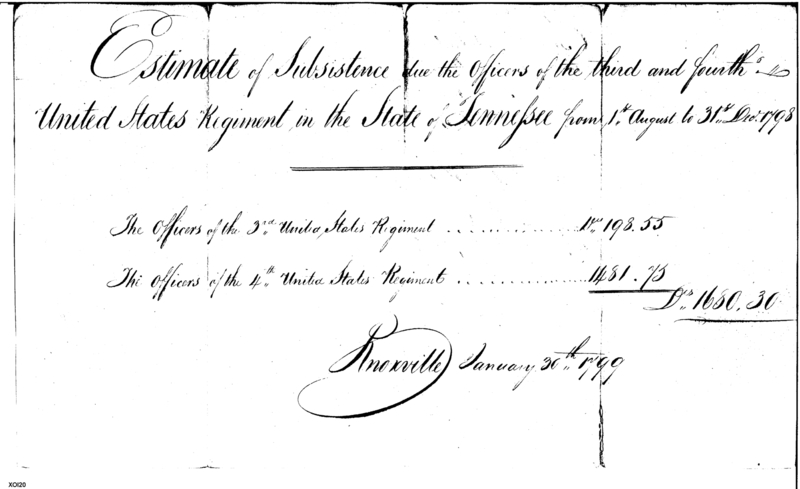 Estimate of Subsistence due the Officers of the third and fourth
United States Regiment in the State of Tennessee from 1st August to 31st Decr. 1798
The Officers of the 3rd United States Regiment .................. Drs 198.55
The Officers of the 4th United States Regiment .................. 1481.75
Drs 1680.30
Knoxville January 30th 1799
XOI20